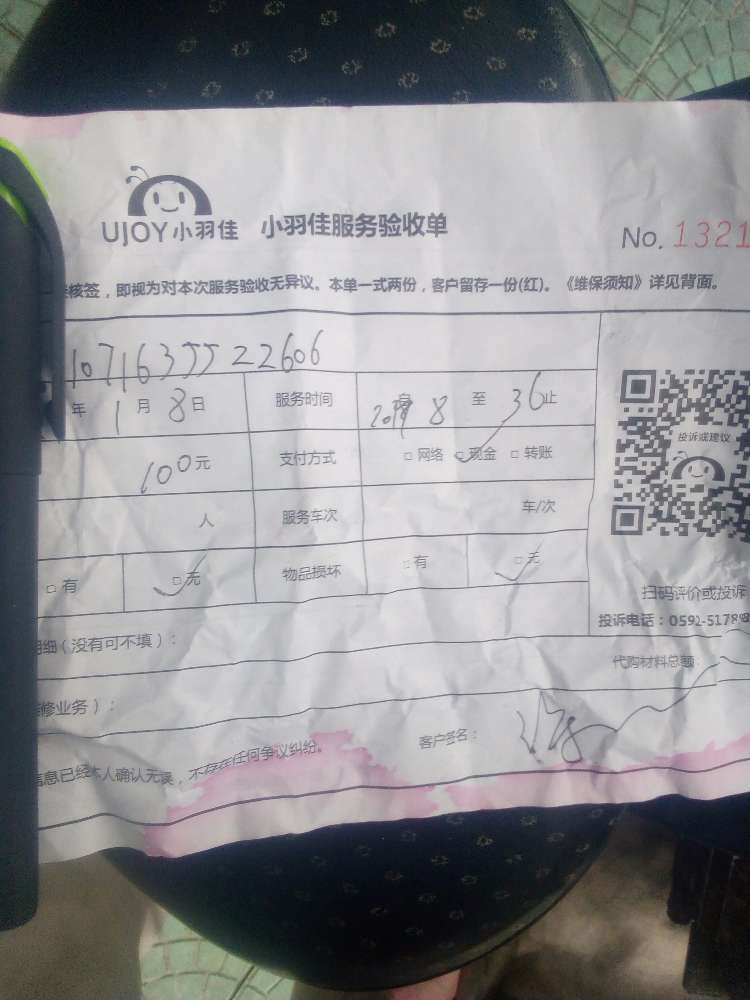 UJOY小羽佳 小羽佳服务验收单
No. 1321
核签，即视为对本次服务验收无异议。本单一式两份，客户留存一份(红)。《维保须知》详见背面。
10716355522606
年1月8日 服务时间 自 8 至 36止
投诉或建议
100元 支付方式 □网络 □现金 □转账
人 服务车次 车/次
□有 □无 物品损坏 □有 □无
扫码评价或投诉
投诉电话：0592-5178
明细（没有可不填）：
代购材料总额：
修业务）：
客户签名：
信息已经本人确认无误，不存在任何争议纠纷。